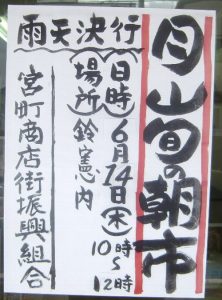 月山旬の朝市
雨天決行
(日時)6月14日(木)
10時〜12時
(場所)鈴憲内
宮町商店街振興組合